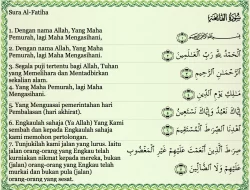 Sura Al-Fatiha
سُورَةُ الْفَاتِحَةِ
1. Dengan nama Allah, Yang Maha
Pemurah, lagi Maha Mengasihani.
2. Dengan nama Allah, Yang Maha
Pemurah, lagi Maha Mengasihani.
3. Segala puji tertentu bagi Allah, Tuhan
yang Memelihara dan Mentadbirkan
sekalian alam.
4. Yang Maha Pemurah, lagi Maha
Mengasihani.
5. Yang Menguasai pemerintahan hari
Pembalasan (hari akhirat).
6. Engkaulah sahaja (Ya Allah) Yang Kami
sembah dan kepada Engkaulah sahaja
kami memohon pertolongan.
7. Tunjukilah kami jalan yang lurus. Iaitu
jalan orang-orang yang Engkau telah
kurniakan nikmat kepada mereka, bukan
(jalan) orang-orang yang Engkau telah
murkai dan bukan pula (jalan)
orang-orang yang sesat.
بِسْمِ اللَّهِ الرَّحْمَٰنِ الرَّحِيمِ
الْحَمْدُ لِلَّهِ رَبِّ الْعَالَمِينَ
الرَّحْمَٰنِ الرَّحِيمِ
مَالِكِ يَوْمِ الدِّينِ
إِيَّاكَ نَعْبُدُ وَإِيَّاكَ نَسْتَعِينُ
اهْدِنَا الصِّرَاطَ الْمُسْتَقِيمَ
صِرَاطَ الَّذِينَ أَنْعَمْتَ عَلَيْهِمْ غَيْرِ الْمَغْضُوبِ
عَلَيْهِمْ وَلَا الضَّالِّينَ